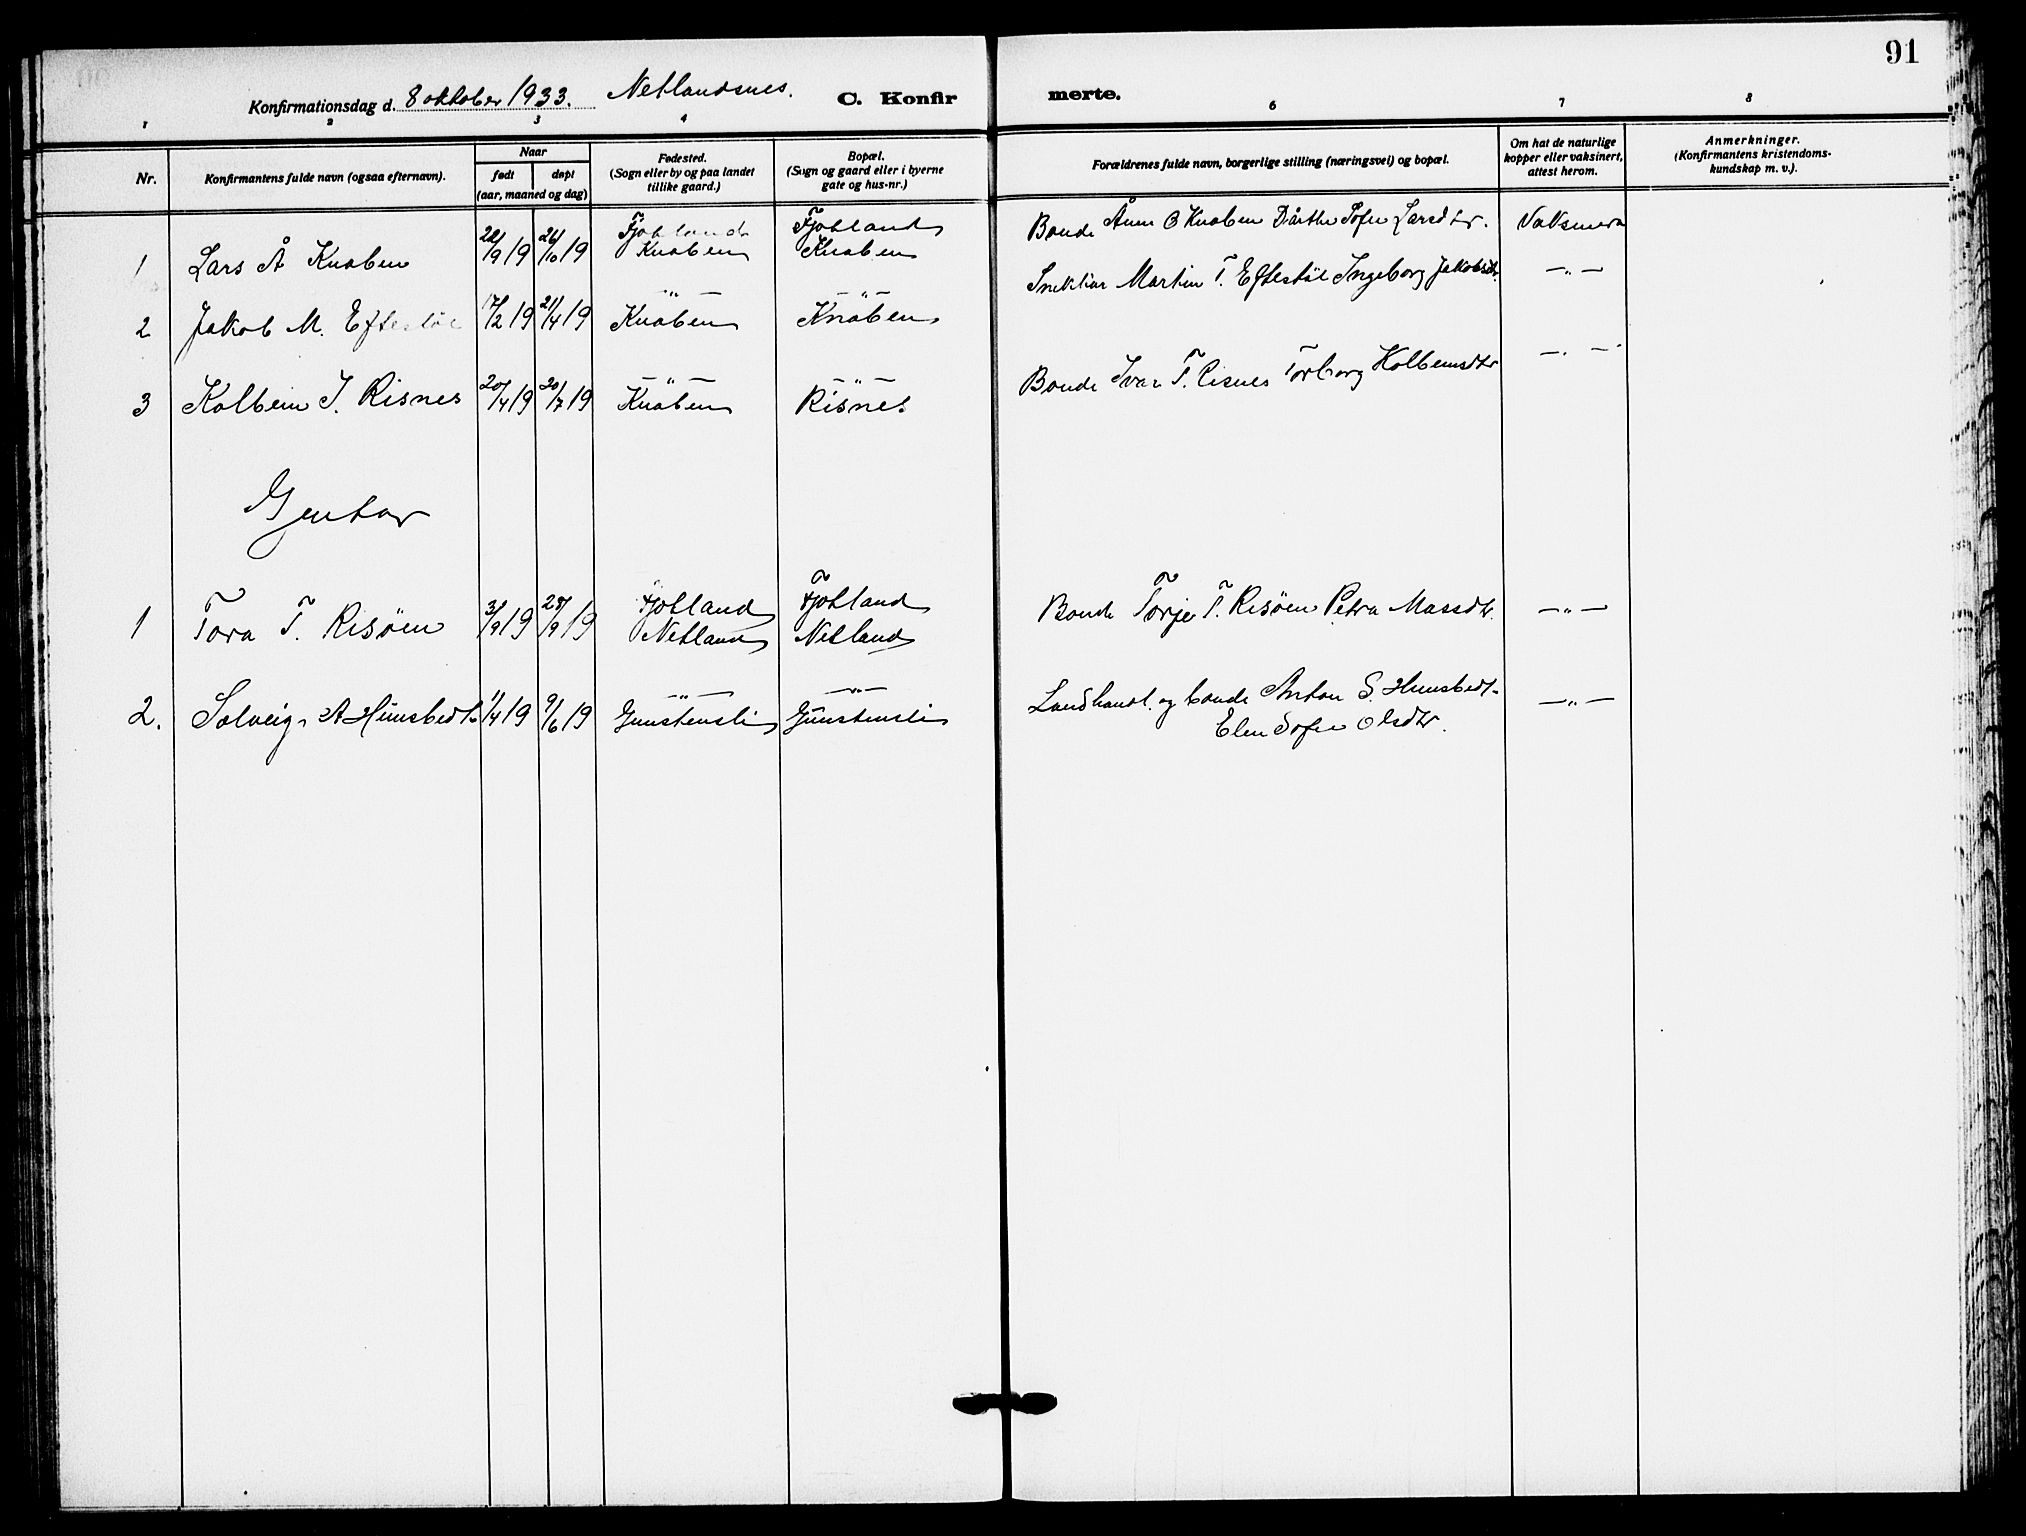 91
Konfirmationsdag d. 8 oktober 1933. Netlandsnes. C. Konfir merte.
1 2 3 4 6 7 8
Nr.
Konfirmantens fulde navn (ogsaa efternavn).
Naar
født døpt
(aar, maaned og dag)
Fødested.
(Sogn eller by og paa landet
tillike gaard.)
Bopæl.
(Sogn og gaard eller i byerne
gate og hus-nr.)
Forældrenes fulde navn, borgerlige stilling (næringsvei) og bopæl.
Om hat de naturlige
kopper eller vaksinert,
attest herom.
Anmerkninger.
(Konfirmantens kristendoms-
kundskap m. v.).
1 Lars Å Knaben /9 19 26/10 19 Fjotland Knaben Fjotland Knaben Bonde Knaben Sofie Larsdtr.
2 Jakob M. Eftestøl 17/2 19 21/4 19 —„— Knaben —„— Knaben Martin T. Eftestøl Ingeborg Jakobsdtr. —„—
3 Kolbein I. Risnes 20/4 19 20/7 19 —„— Knaben —„— Risnes Bonde Ivar T. Risnes Torborg Kolbeinsdtr —„—
Gjentar
1 Tora T. Risøen 3/9 19 /9 19 Fjotland Netland Fjotland Netland Bonde Torje T. Risøen Petra Massdtr. —„—
2. Solveig A Hunsbedt 1/4 19 9/6 19 —„— Gunstensli —„— Gunstensli Landhandl. og bonde Anton S. Hunsbedt. —„—
Elen Sofie Olsdtr.